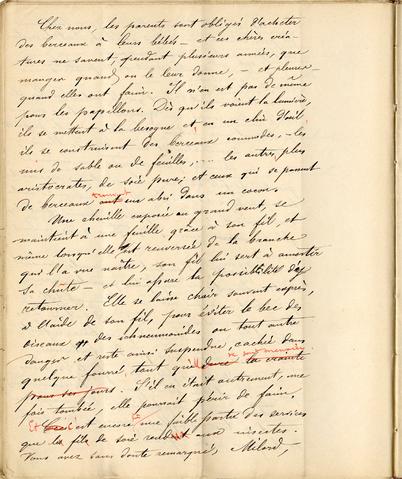 Chez nous, les parents sont obligés d'acheter
des berceaux à leurs bébés – et ces chères créa-
tures ne savent, pendant plusieurs années, que
manger quand on le leur donne, – et pleurer
quand elles ont faim. Il n'en est pas de même
pour les papillons. Dès qu'ils voient la lumière,
ils se mettent à la besogne et en un clin d'œil
ils se construisent des berceaux commodes, – les
uns de sable ou de feuilles,... les autres, plus
aristocrates, de soie pure; et ceux qui se passent
de berceaux ont un abri dans un cocon.
Une chenille exposée au grand vent, se
maintient à une feuille grâce à son fil, et
même lorsqu'elle est renversée de la branche
qui l'a vue naître, son fil lui sert à amortir
sa chûte – et lui assure la possibilité d'y
retourner. Elle se laisse choir souvent exprès,
à l'aide de son fil, pour éviter le bec des
oiseaux, des ichneumonides ou tout autre
danger et reste ainsi suspendue, cachée dans
quelque fourré, tant que dure la crainte
pour ses jours. S'il en était autrement, une
fois tombée, elle pourrait périr de faim.
Et c'est encore une faible partie des services
que le fil de soie rend aux insectes.
Vous avez sans doute remarqué, Milord, –